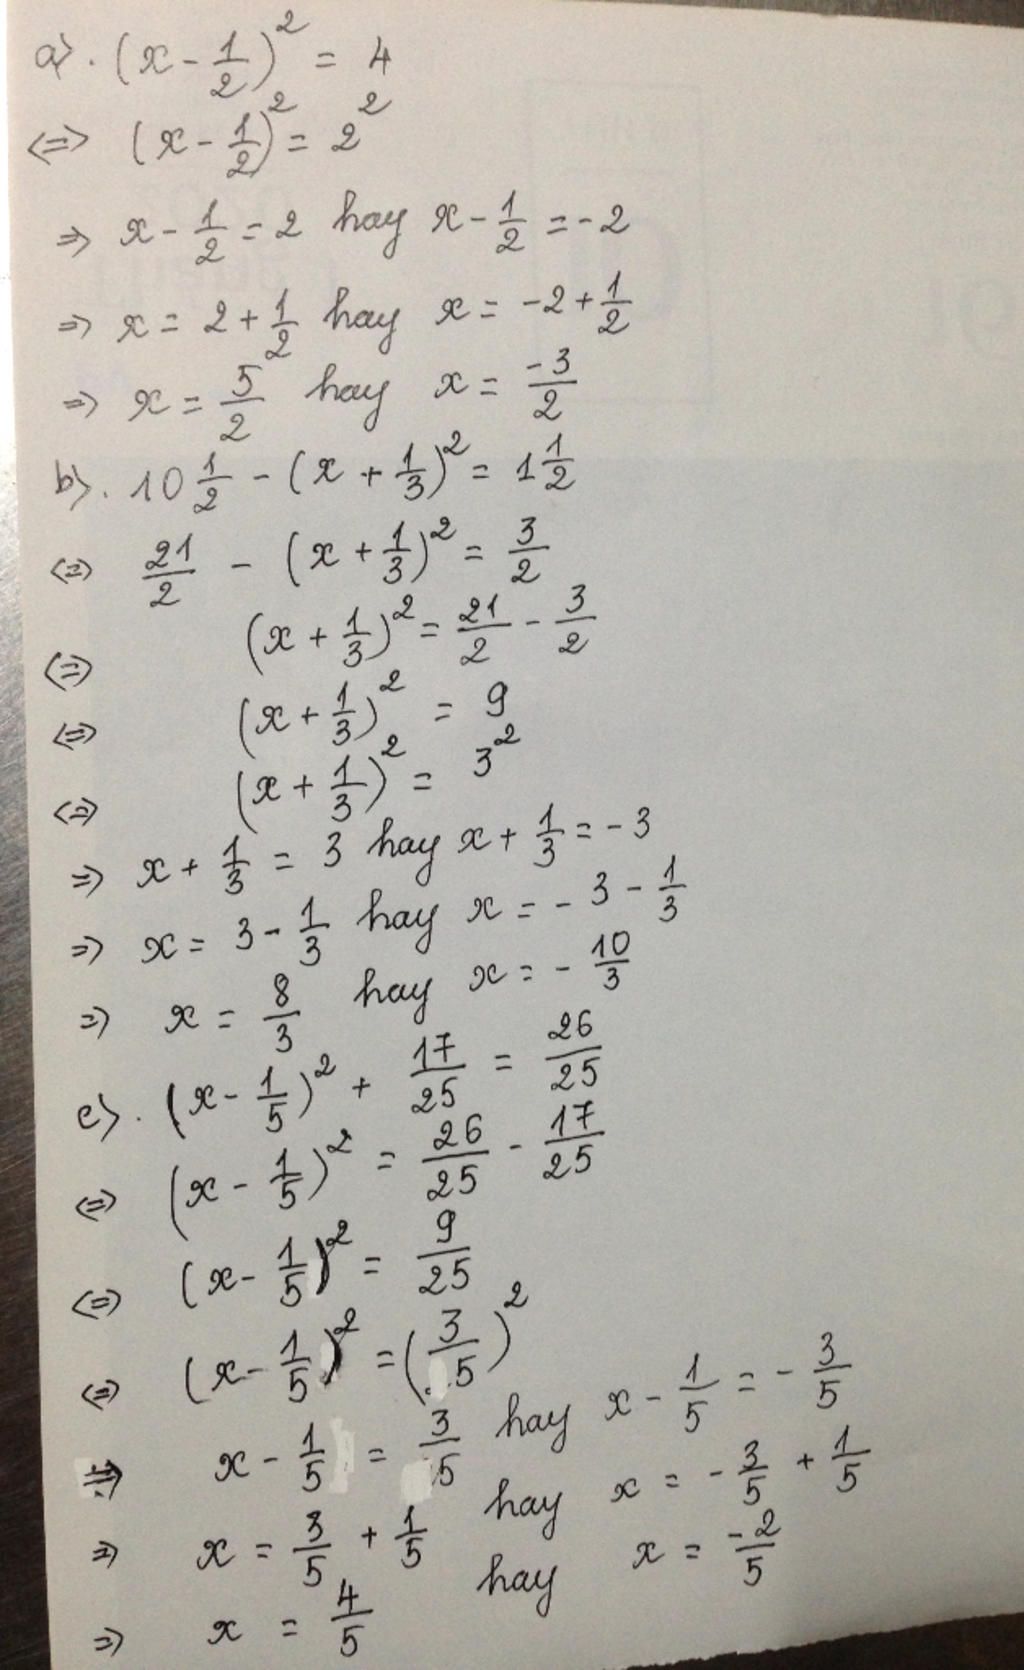 a). (x - 1/2)² = 4
<=> (x - 1/2)² = 2²
=> x - 1/2 = 2 hay x - 1/2 = -2
=> x = 2 + 1/2 hay x = -2 + 1/2
=> x = 5/2 hay x = -3/2
b). 10 1/2 - (x + 1/3)² = 1 1/2
<=> 21/2 - (x + 1/3)² = 3/2
<=> (x + 1/3)² = 21/2 - 3/2
<=> (x + 1/3)² = 9
<=> (x + 1/3)² = 3²
=> x + 1/3 = 3 hay x + 1/3 = -3
=> x = 3 - 1/3 hay x = -3 - 1/3
=> x = 8/3 hay x = -10/3
c). (x - 1/5)² + 17/25 = 26/25
<=> (x - 1/5)² = 26/25 - 17/25
<=> (x - 1/5)² = 9/25
<=> (x - 1/5)² = (3/5)²
=> x - 1/5 = 3/5 hay x - 1/5 = -3/5
=> x = 3/5 + 1/5 hay x = -3/5 + 1/5
=> x = 4/5 hay x = -2/5